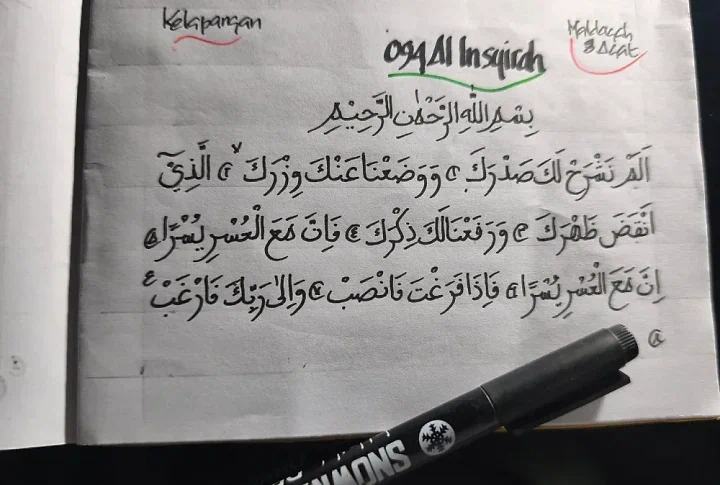 Kelapangan
094 Al Insyirah
8 Ayat
بِسْمِ اللّٰهِ الرَّحْمٰنِ الرَّحِيْمِ
اَلَمْ نَشْرَحْ لَكَ صَدْرَكَ ۝١ وَوَضَعْنَا عَنْكَ وِزْرَكَ ۝٢ الَّذِيْ
اَنْقَضَ ظَهْرَكَ ۝٣ وَرَفَعْنَا لَكَ ذِكْرَكَ ۝٤ فَاِنَّ مَعَ الْعُسْرِ يُسْرًا ۝٥
اِنَّ مَعَ الْعُسْرِ يُسْرًا ۝٦ فَاِذَا فَرَغْتَ فَانْصَبْ ۝٧ وَاِلٰى رَبِّكَ فَارْغَبْ ࣖ
۝٨
SNOWM